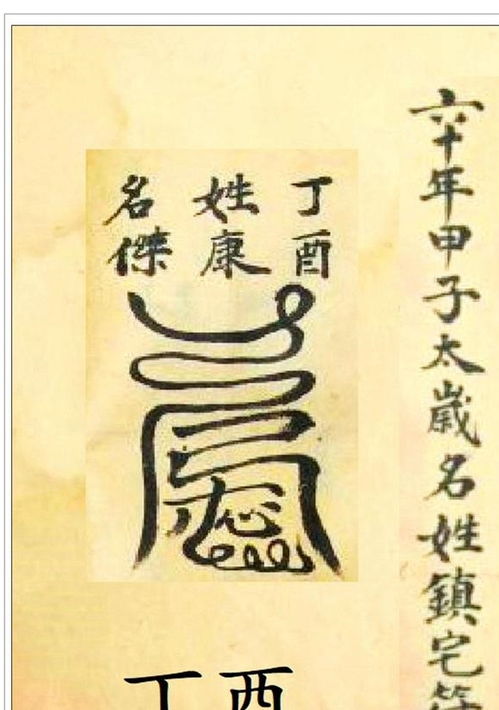 六十年甲子太歲名姓鎮宅符
丁酉
姓康
名傑
丁酉